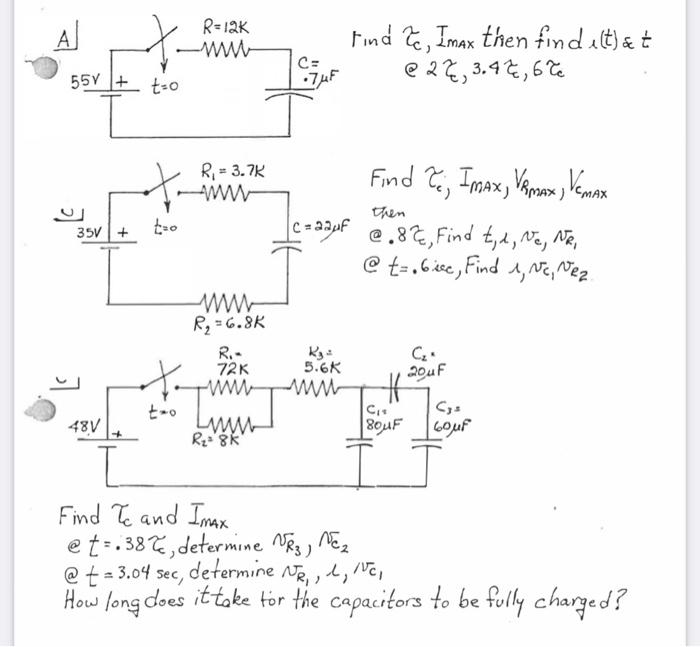 A
R=12K
C=
.7µF
55V + t=0
Find τc, IMAX then find i(t) & t
@ 2τc, 3.4τc, 6τc
R₁ = 3.7K
35V + t=0
C=22µF
R₂=6.8K
Find τc, IMAX, VRMAX, VCMAX
then
@ .8τc, Find t, i, vc, vR₁
@ t=.6 sec, Find i, vc, vR₂
R₁=
72K
R₃=
5.6K
C₂=
20µF
t=0
48V +
R₂=8K
C₁=
80µF
C₃=
60µF
Find τc and IMAX
@ t=.38τc, determine vR₃, vC₂
@ t=3.04 sec, determine vR₁, i, vC₁
How long does it take for the capacitors to be fully charged?